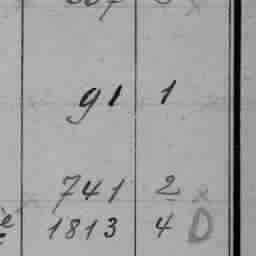 91 1
741 2
1813 4 D